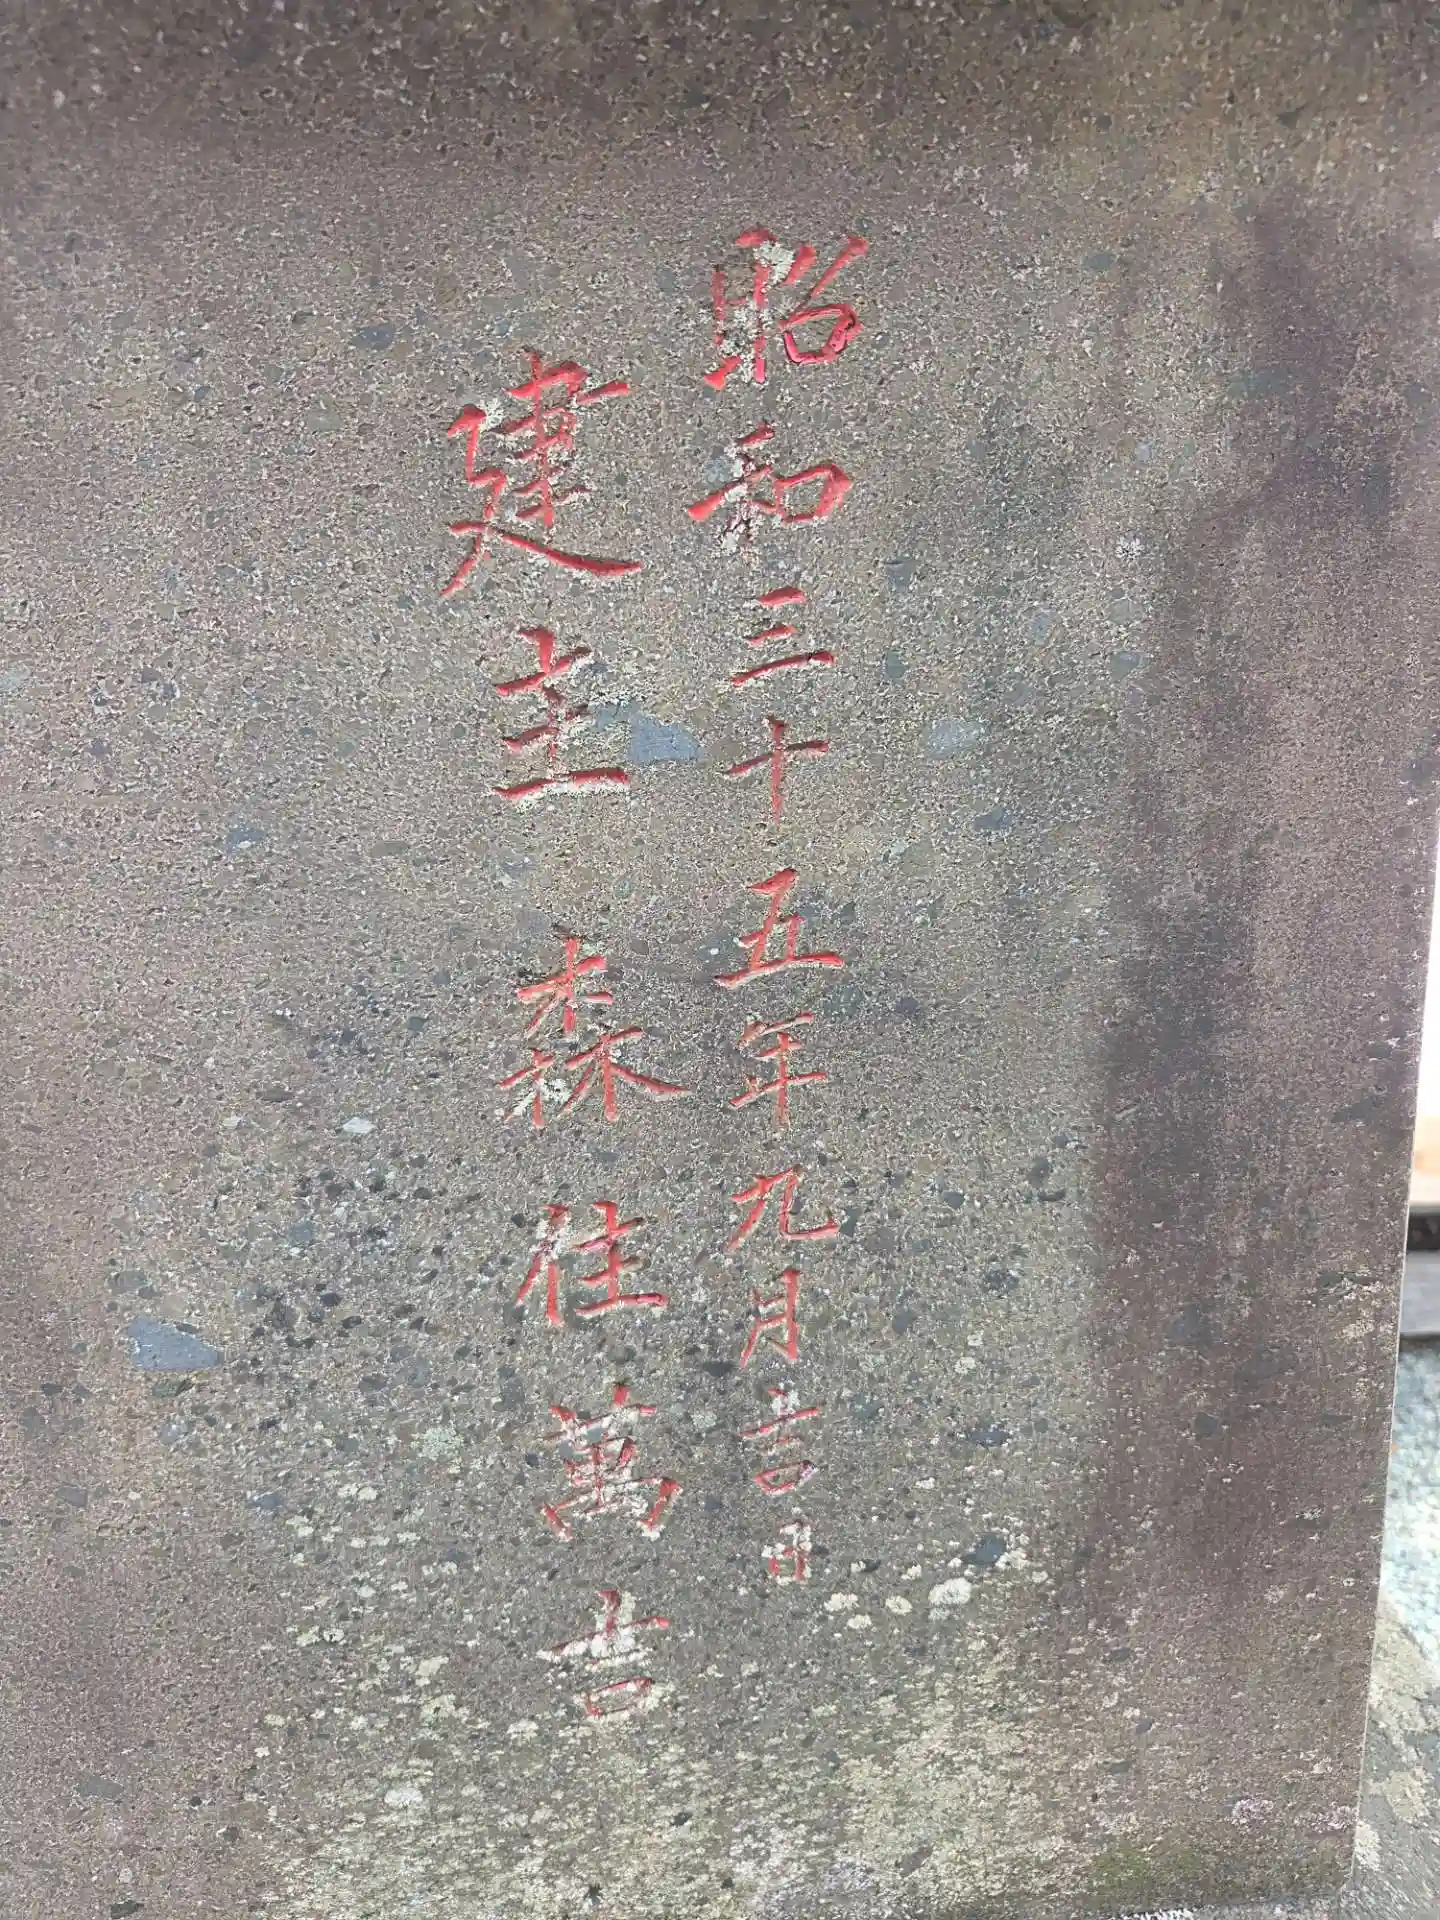 昭和三十五年九月吉日
建主 森佳萬吉